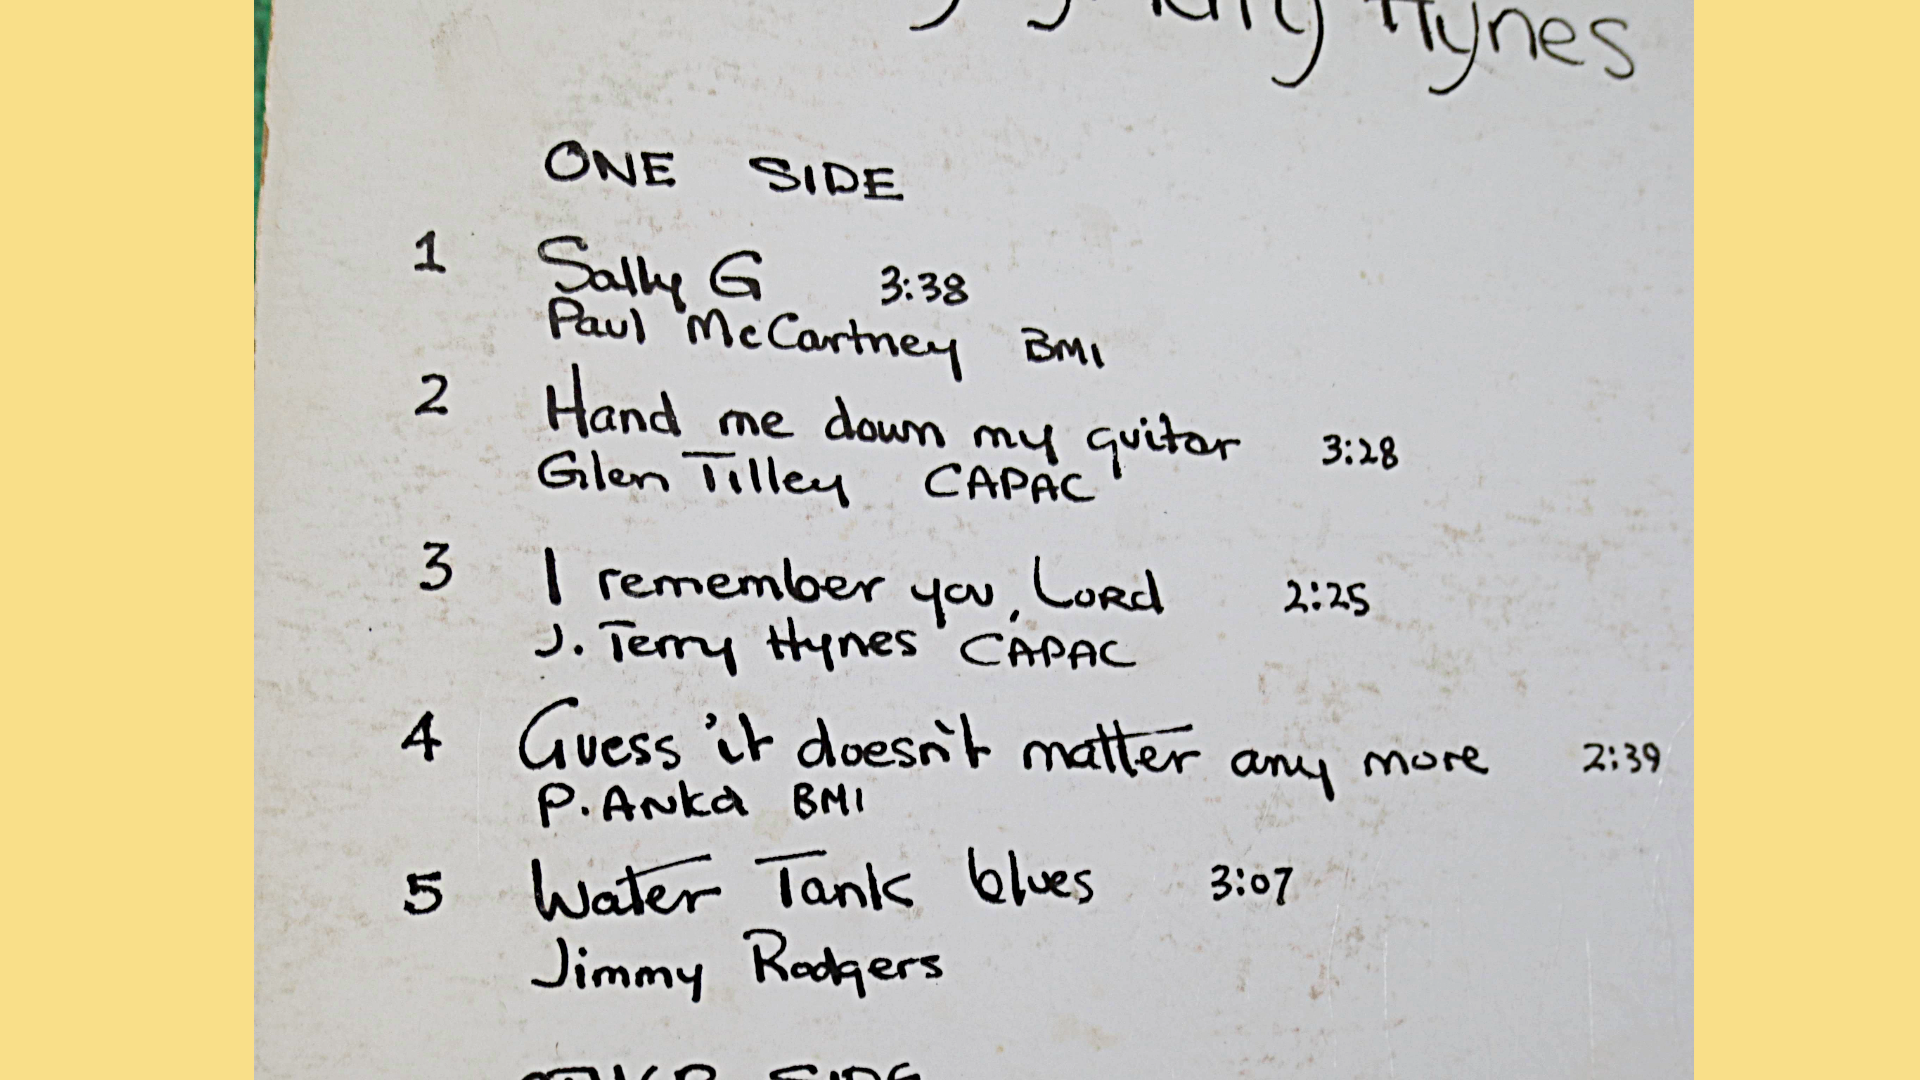 Hynes
ONE SIDE
1 Sally G 3:38
Paul McCartney BMI
2 Hand me down my guitar 3:28
Glen Tilley CAPAC
3 I remember you, Lord 2:25
J. Terry Hynes CAPAC
4 Guess it doesn't matter any more 2:39
P. Anka BMI
5 Water Tank blues 3:07
Jimmy Rodgers
OTHER SIDE